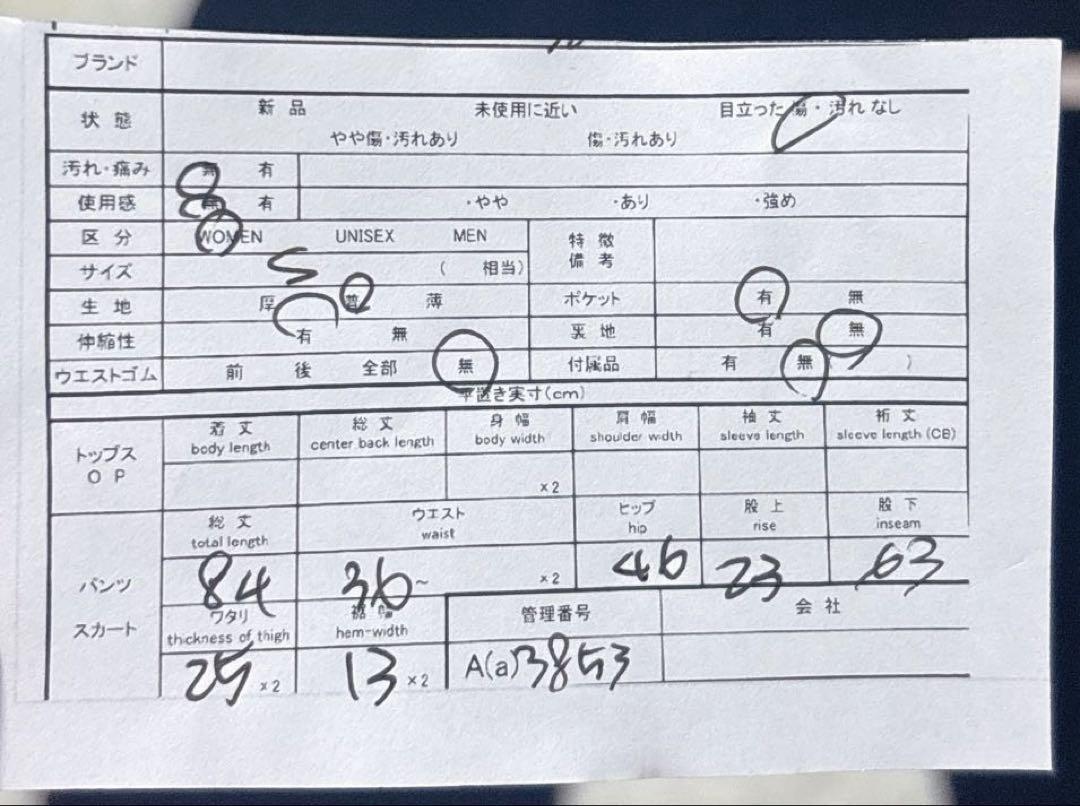 ブランド
状態 新品 未使用に近い 目立った傷・汚れなし
やや傷・汚れあり 傷・汚れあり
汚れ・痛み 無 有
使用感 無 有 ・やや ・あり ・強め
区分 WOMEN UNISEX MEN 特徴
備考
サイズ S ( 相当)
生地 厚 普 薄 ポケット 有 無
伸縮性 有 無 裏地 有 無
ウエストゴム 前 後 全部 無 付属品 有 無 )
平置き実寸(cm)
トップス
OP
着丈 総丈 身幅 肩幅 袖丈 裄丈
body length center back length body width shoulder width sleeve length sleeve length (CB)
×2
総丈 ウエスト ヒップ 股上 股下
total length waist hip rise inseam
パンツ 84 36~ ×2 46 23 63
スカート ワタリ 裾幅 管理番号 会社
thickness of thigh hem-width
25 ×2 13 ×2 A(a)3853